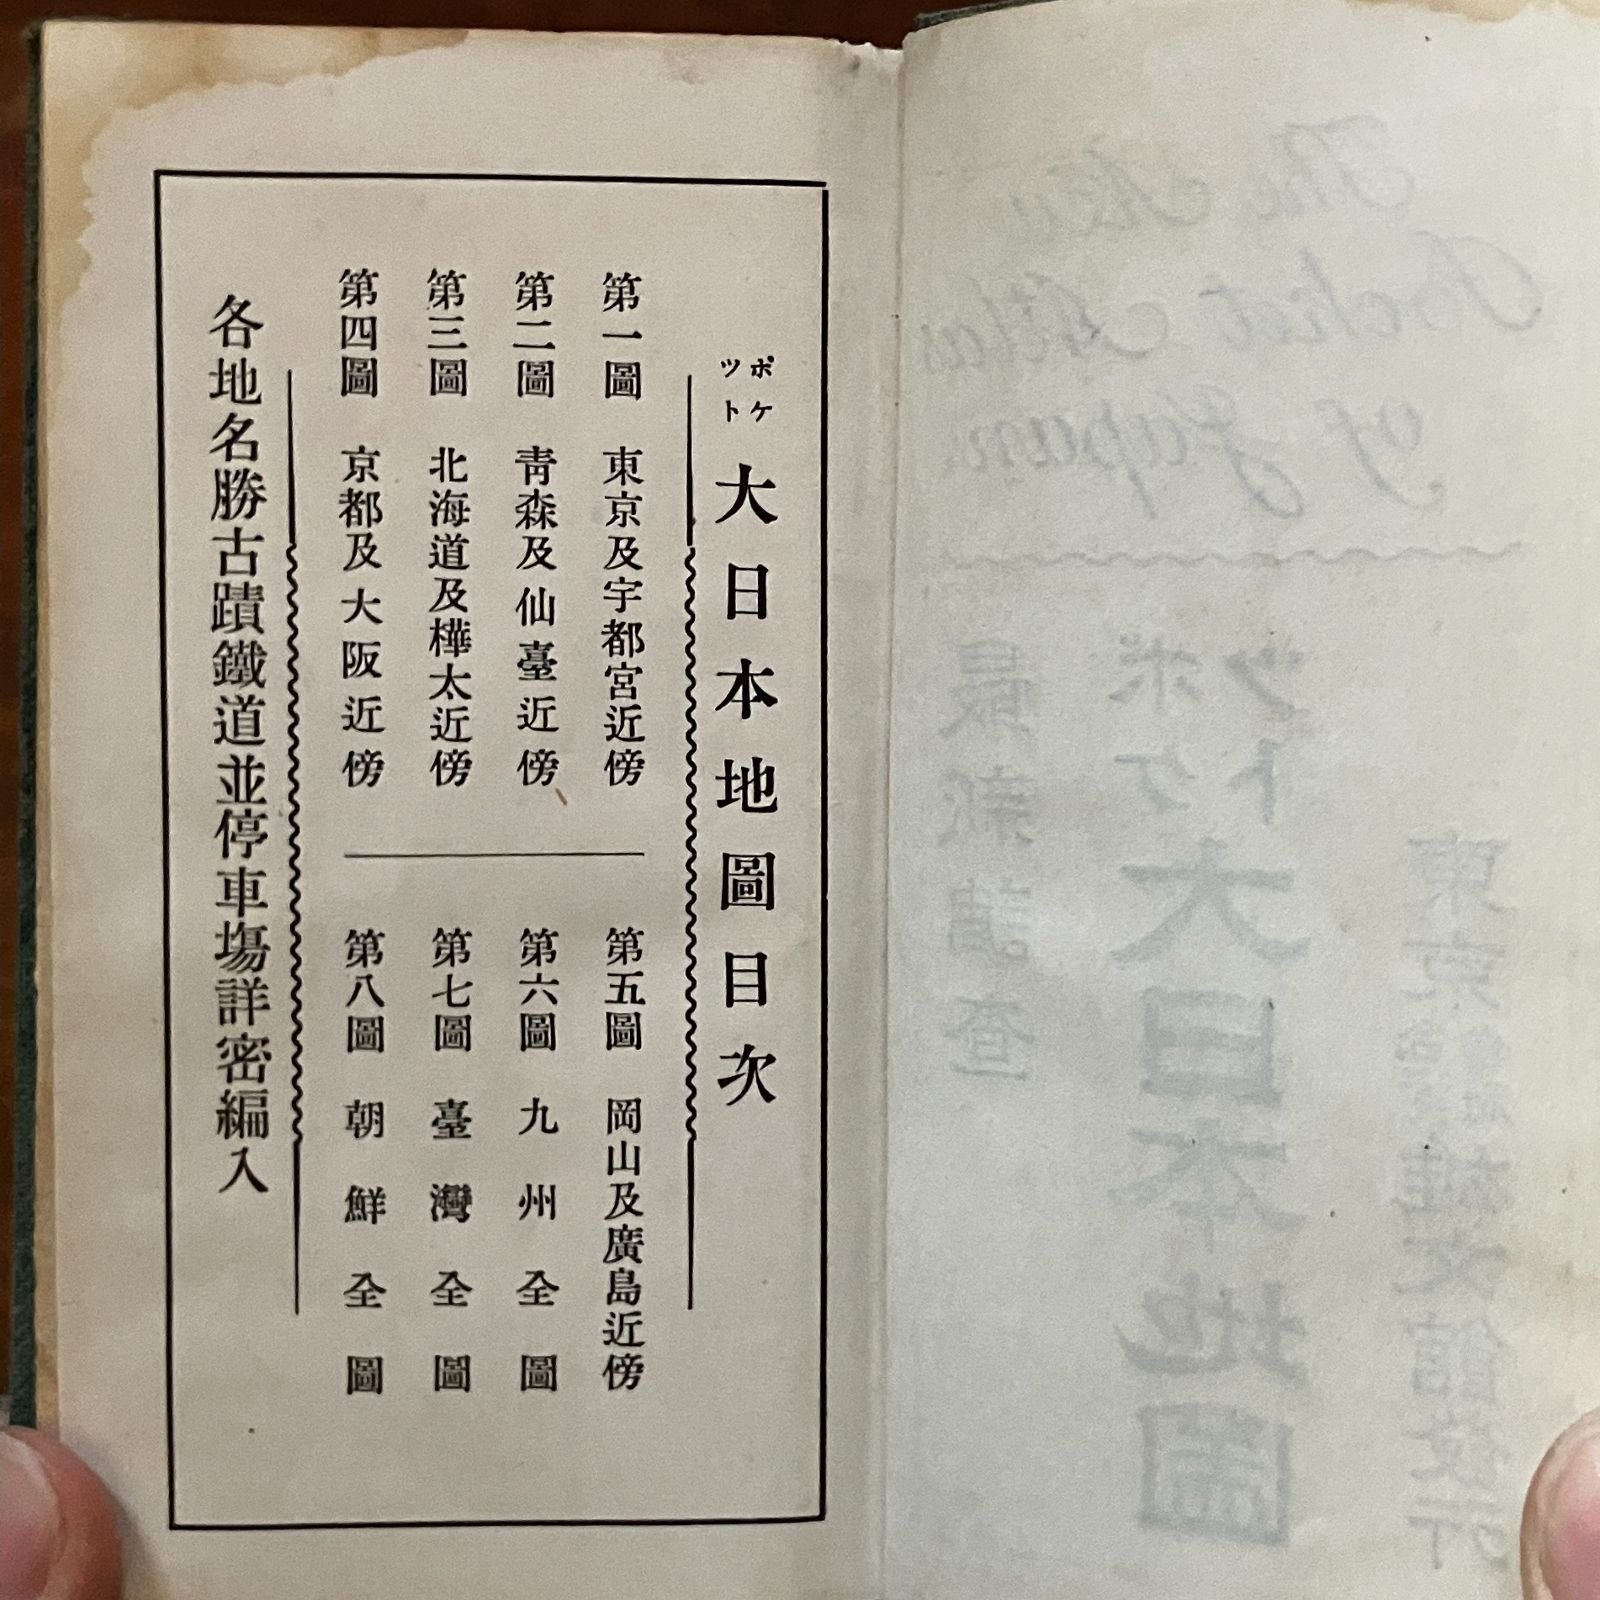 ポケット 大日本地圖目次
第一圖 東京及宇都宮近傍
第二圖 靑森及仙臺近傍
第三圖 北海道及樺太近傍
第四圖 京都及大阪近傍
第五圖 岡山及廣島近傍
第六圖 九州全圖
第七圖 臺灣全圖
第八圖 朝鮮全圖
各地名勝古蹟鐵道並停車塲詳密編入
The New
Pocket Atlas
of Japan
最新調查
ポケット 大日本地圖
東京
雄文館發行